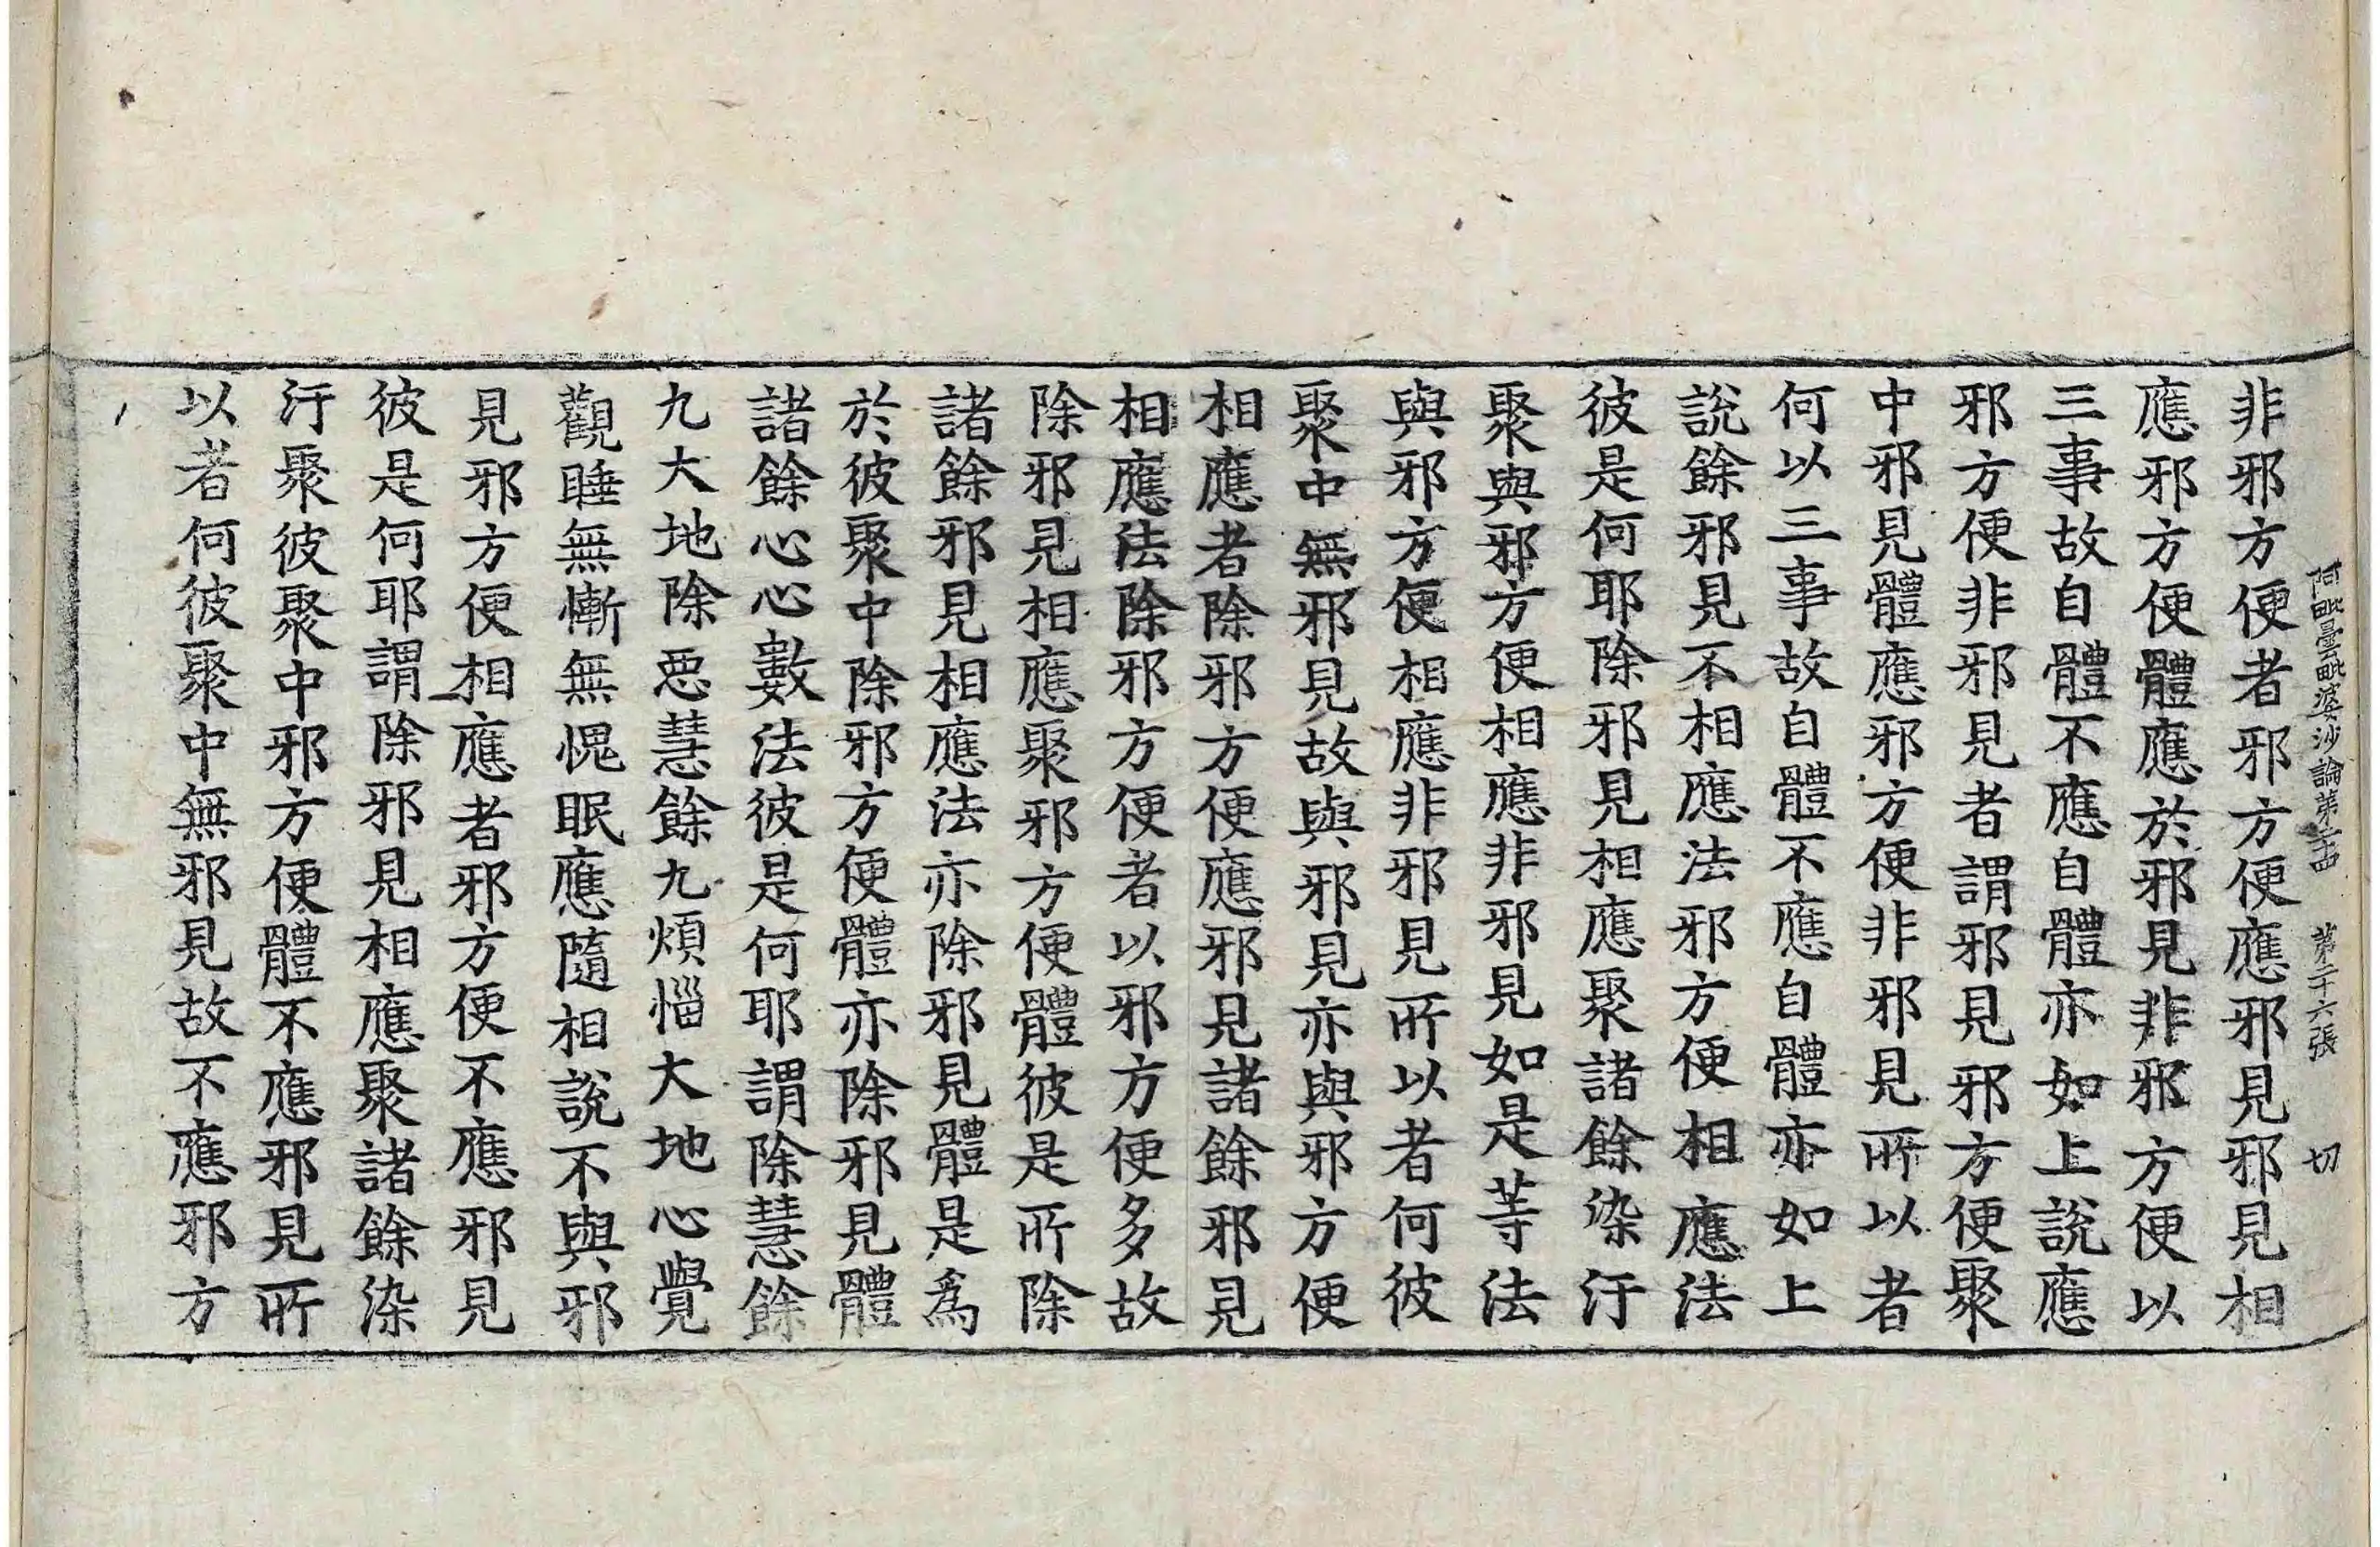 阿毗曇毗婆沙論第二十四　第二十六張　切
非邪方便者邪方便應邪見邪見相
應邪方便體應於邪見非邪方便以
三事故自體不應自體亦如上說應
邪方便非邪見者謂邪見邪方便聚
中邪見體應邪方便非邪見所以者
何以三事故自體不應自體亦如上
說餘邪見不相應法邪方便相應法
彼是何耶除邪見相應聚諸餘染汙
聚與邪方便相應非邪見如是等法
與邪方便相應非邪見所以者何彼
聚中無邪見故與邪見亦與邪方便
相應者除邪方便應邪見諸餘邪見
相應法除邪方便者以邪方便多故
除邪見相應聚邪方便體彼是所除
諸餘邪見相應法亦除邪見體是為
於彼聚中除邪方便體亦除邪見體
諸餘心心數法彼是何耶謂除慧餘
九大地除惡慧餘九煩惱大地心覺
觀睡無慚無愧眠應隨相說不與邪
見邪方便相應者邪方便不應邪見
彼是何耶謂除邪見相應聚諸餘染
汙聚彼聚中邪方便體不應邪見所
以者何彼聚中無邪見故不應邪方